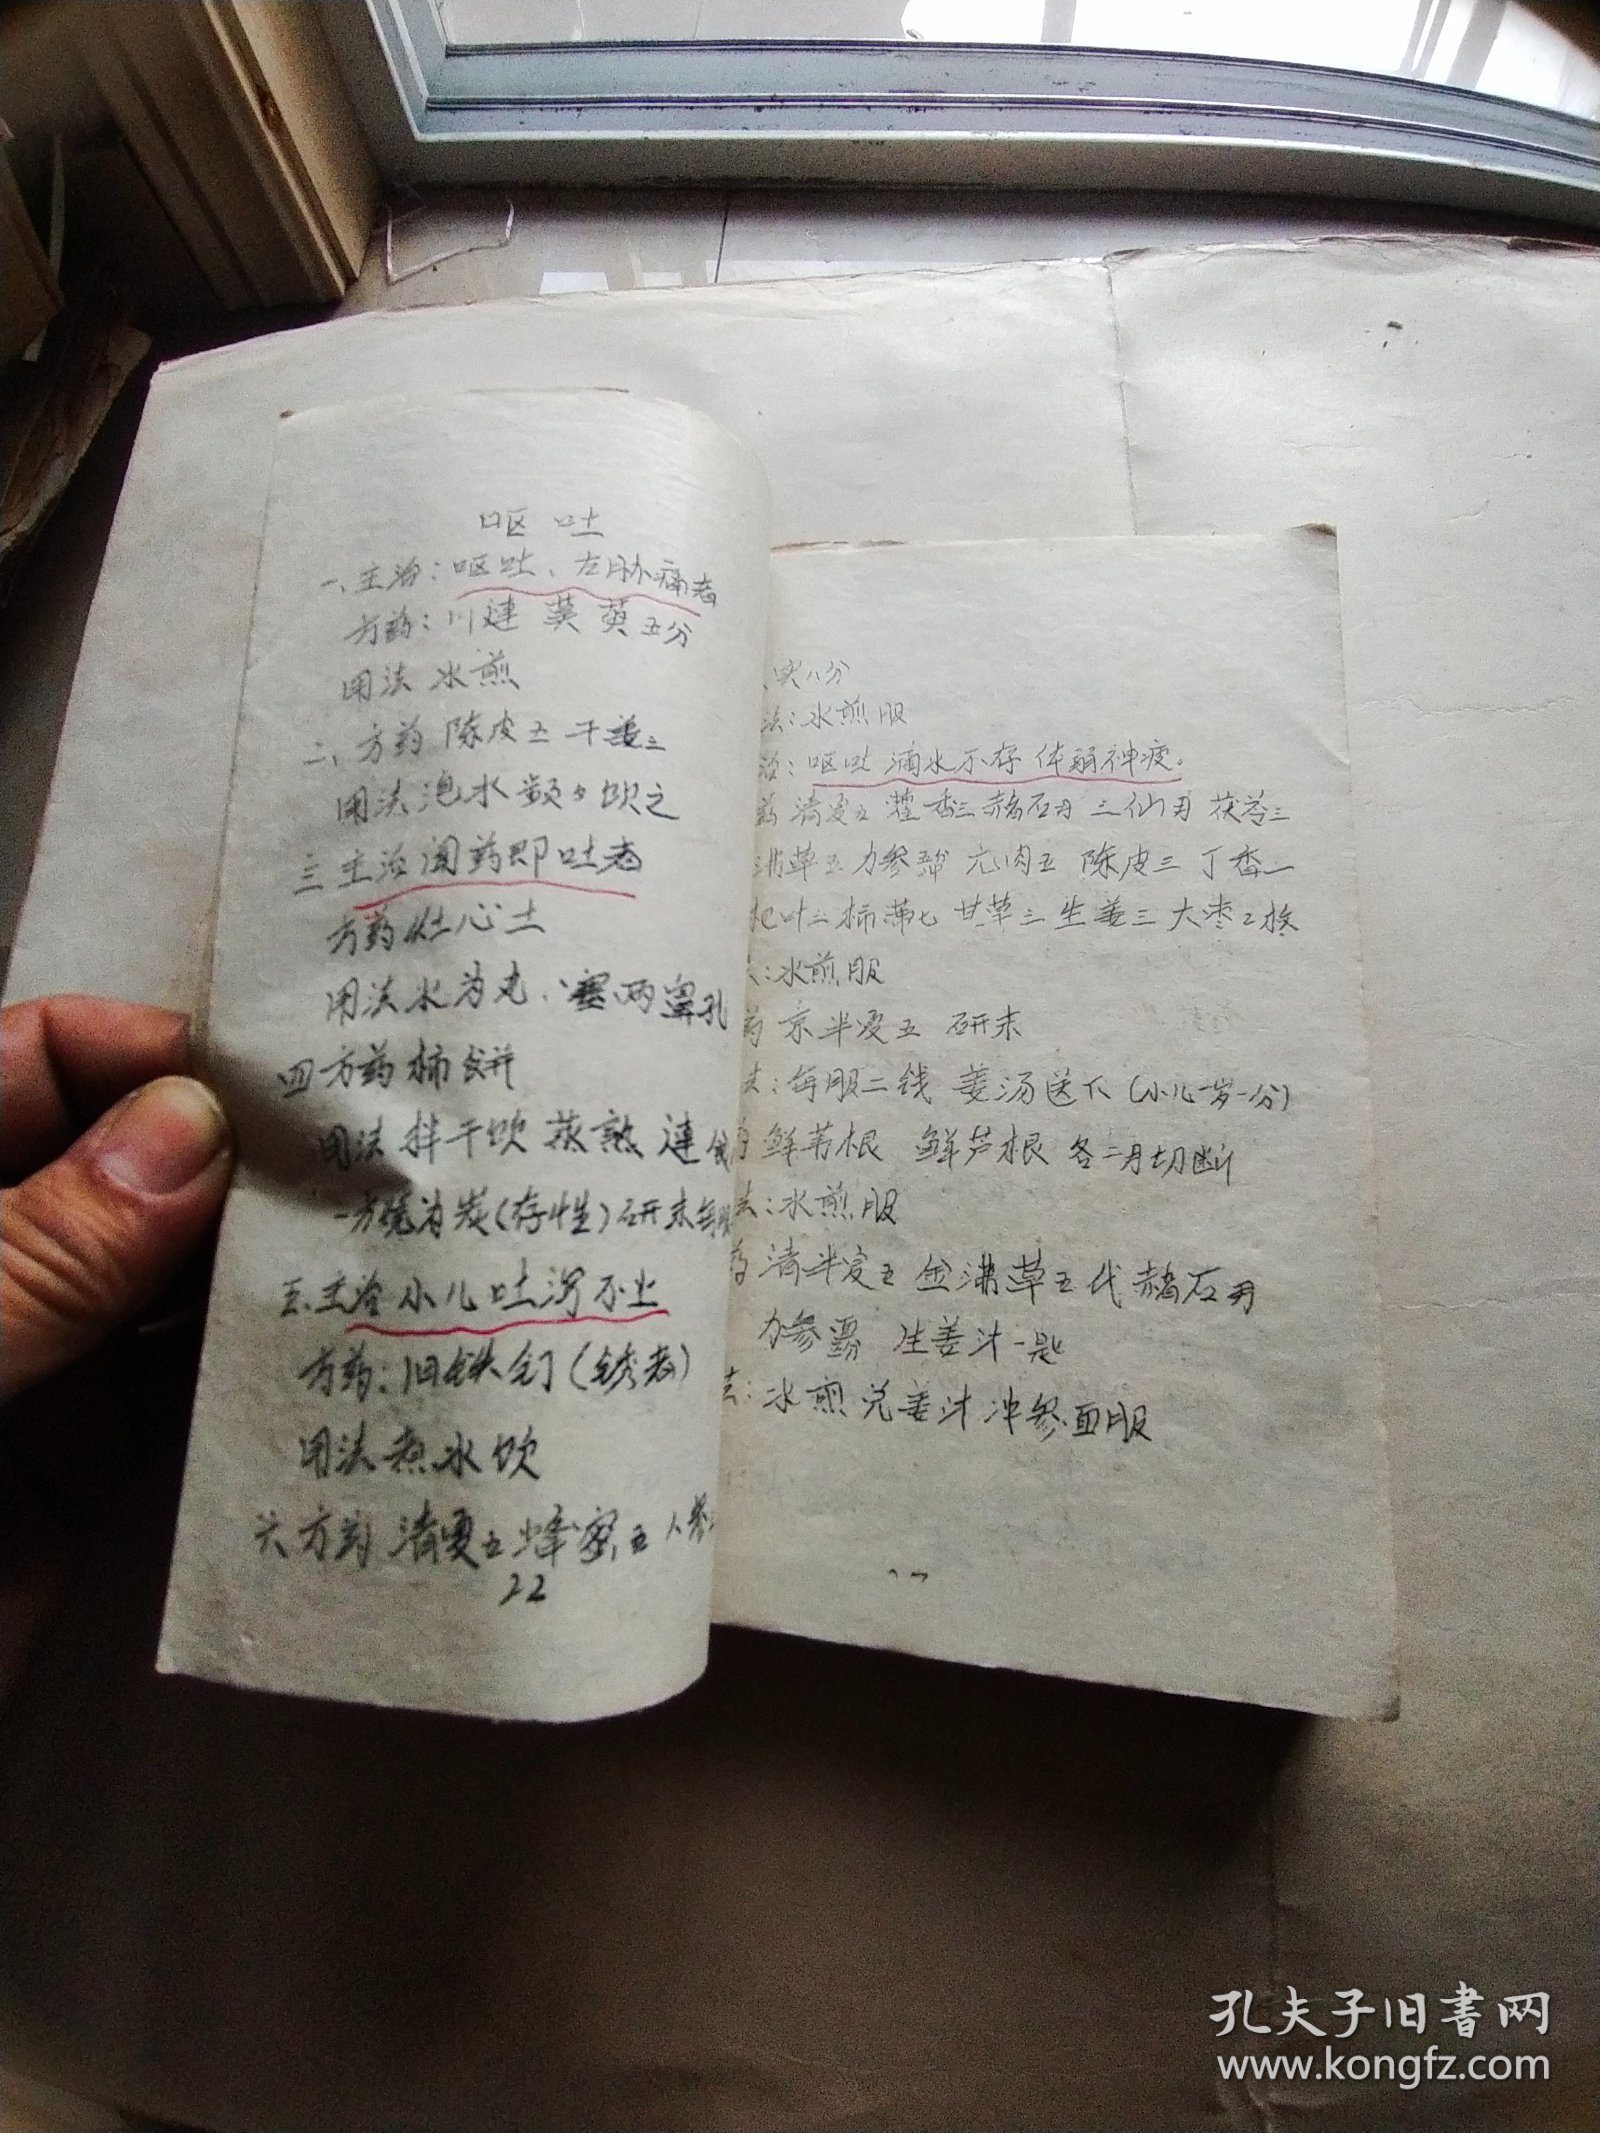 呕吐
一、主治：呕吐、左胁痛者
方药：川连 茱萸五分
用法 水煎
二、方药 陈皮五 干姜三
用法泡水频々饮之
三 主治闻药即吐者
方药灶心土
用法水为丸、塞两鼻孔
四方药柿饼
用法 拌干饮 蒸熟 连
一方烧为炭(存性)研末每服
五、主治小儿吐泻不止
方药：旧铁钉(锈者)
用法煮水饮
六方药 清夏五蜂蜜五人参
22
实八分
法：水煎服
治：呕吐 滴水不存 体弱神疲。
药 清夏五 藿香三 赭石 三仙 茯苓三
草五 力参 元肉五 陈皮三 丁香一
杷叶三柿蒂七 甘草三 生姜三 大枣2枚
：水煎服
药 京半夏五 研末
法：每服二钱 姜汤送下(小儿一岁一分)
鲜苇根 鲜芦根 各二 切断
法：水煎服
药 清半夏五 金沸草五 代赭石
力参 生姜汁一匙
法：水煎兑姜汁冲参面服
孔夫子旧书网
www.kongfz.com